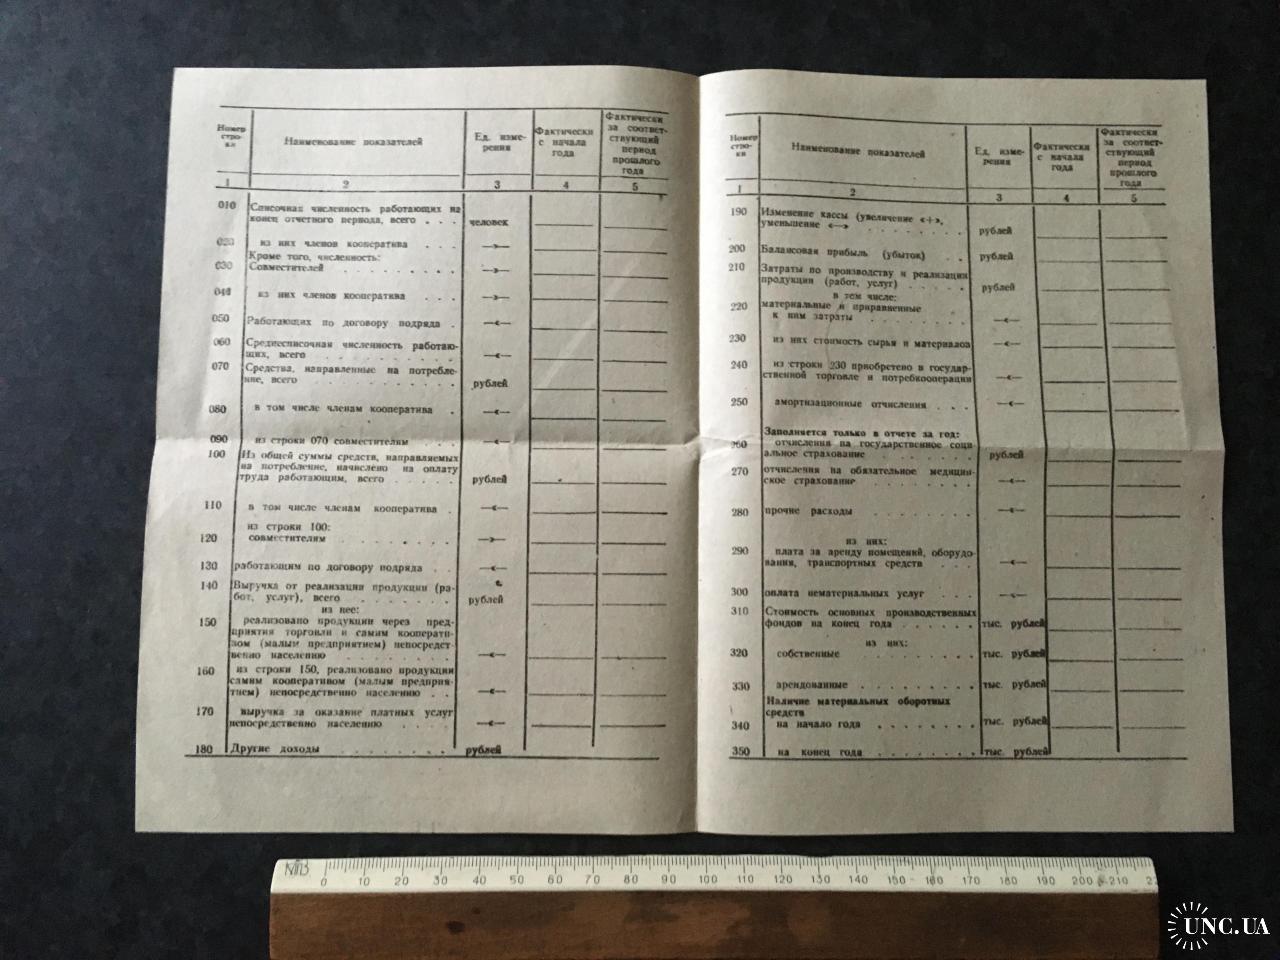 Номер стро- ки
Наименование показателей
Ед. изме- рения
Фактически с начала года
Фактически за соответ- ствующий период прошлого года
1 2 3 4 5
010 Списочная численность работающих на
конец отчетного периода, всего . . . человек
020 из них членов кооператива . . . —»—
Кроме того, численность:
030 Совместителей . . . . . . . —»—
040 из них членов кооператива . . . —»—
050 Работающих по договору подряда . —«—
060 Среднесписочная численность работаю-
щих, всего . . . . . . . . —«—
070 Средства, направленные на потребле-
ние, всего . . . . . . . рублей
080 в том числе членам кооператива . —«—
090 из строки 070 совместителям . . . —«—
100 Из общей суммы средств, направляемых
на потребление, начислено на оплату
труда работающим, всего . . . . . рублей
110 в том числе членам кооператива . —«—
из строки 100:
120 совместителям . . . . . . . —»—
130 работающим по договору подряда . . —«—
140 Выручка от реализации продукции (ра-
бот, услуг), всего . . . . . . рублей
из нее:
150 реализовано продукции через пред-
приятия торговли и самим кооперати-
вом (малым предприятием) непосредст-
венно населению . . . . . . . —«—
160 из строки 150, реализовано продукции
самим кооперативом (малым предприя-
тием) непосредственно населению . . —«—
170 выручка за оказание платных услуг
непосредственно населению . . . . —«—
180 Другие доходы . . . . . . . рублей
Номер стро- ки
Наименование показателей
Ед. изме- рения
Фактически с начала года
Фактически за соответ- ствующий период прошлого года
1 2 3 4 5
190 Изменение кассы (увеличение «+»,
уменьшение «—» . . . . . . . рублей
200 Балансовая прибыль (убыток) . . рублей
210 Затраты по производству и реализации
продукции (работ, услуг) . . . . . рублей
в тем числе:
220 материальные и приравненные
к ним затраты . . . . . . . —«—
230 из них стоимость сырья и материалов —«—
240 из строки 230 приобретено в государ-
ственной торговле и потребкооперации —«—
250 амортизационные отчисления . . . —«—
Заполняется только в отчете за год:
260 отчисления на государственное соци-
альное страхование . . . . . . рублей
270 отчисления на обязательное медицин-
ское страхование . . . . . . . —«—
280 прочие расходы . . . . . . . —«—
из них:
290 плата за аренду помещений, оборудо-
вания, транспортных средств . . . —«—
300 оплата нематериальных услуг . . . —«—
310 Стоимость основных производственных
фондов на конец года . . . . . . тыс. рублей
из них:
320 собственные . . . . . . . . тыс. рублей
330 арендованные . . . . . . . . тыс. рублей
Наличие материальных оборотных
средств
340 на начало года . . . . . . . тыс. рублей
350 на конец года . . . . . . . тыс. рублей
0 10 20 30 40 50 60 70 80 90 100 110 120 130 140 150 160 170 180 190 200 210
UNC.UA